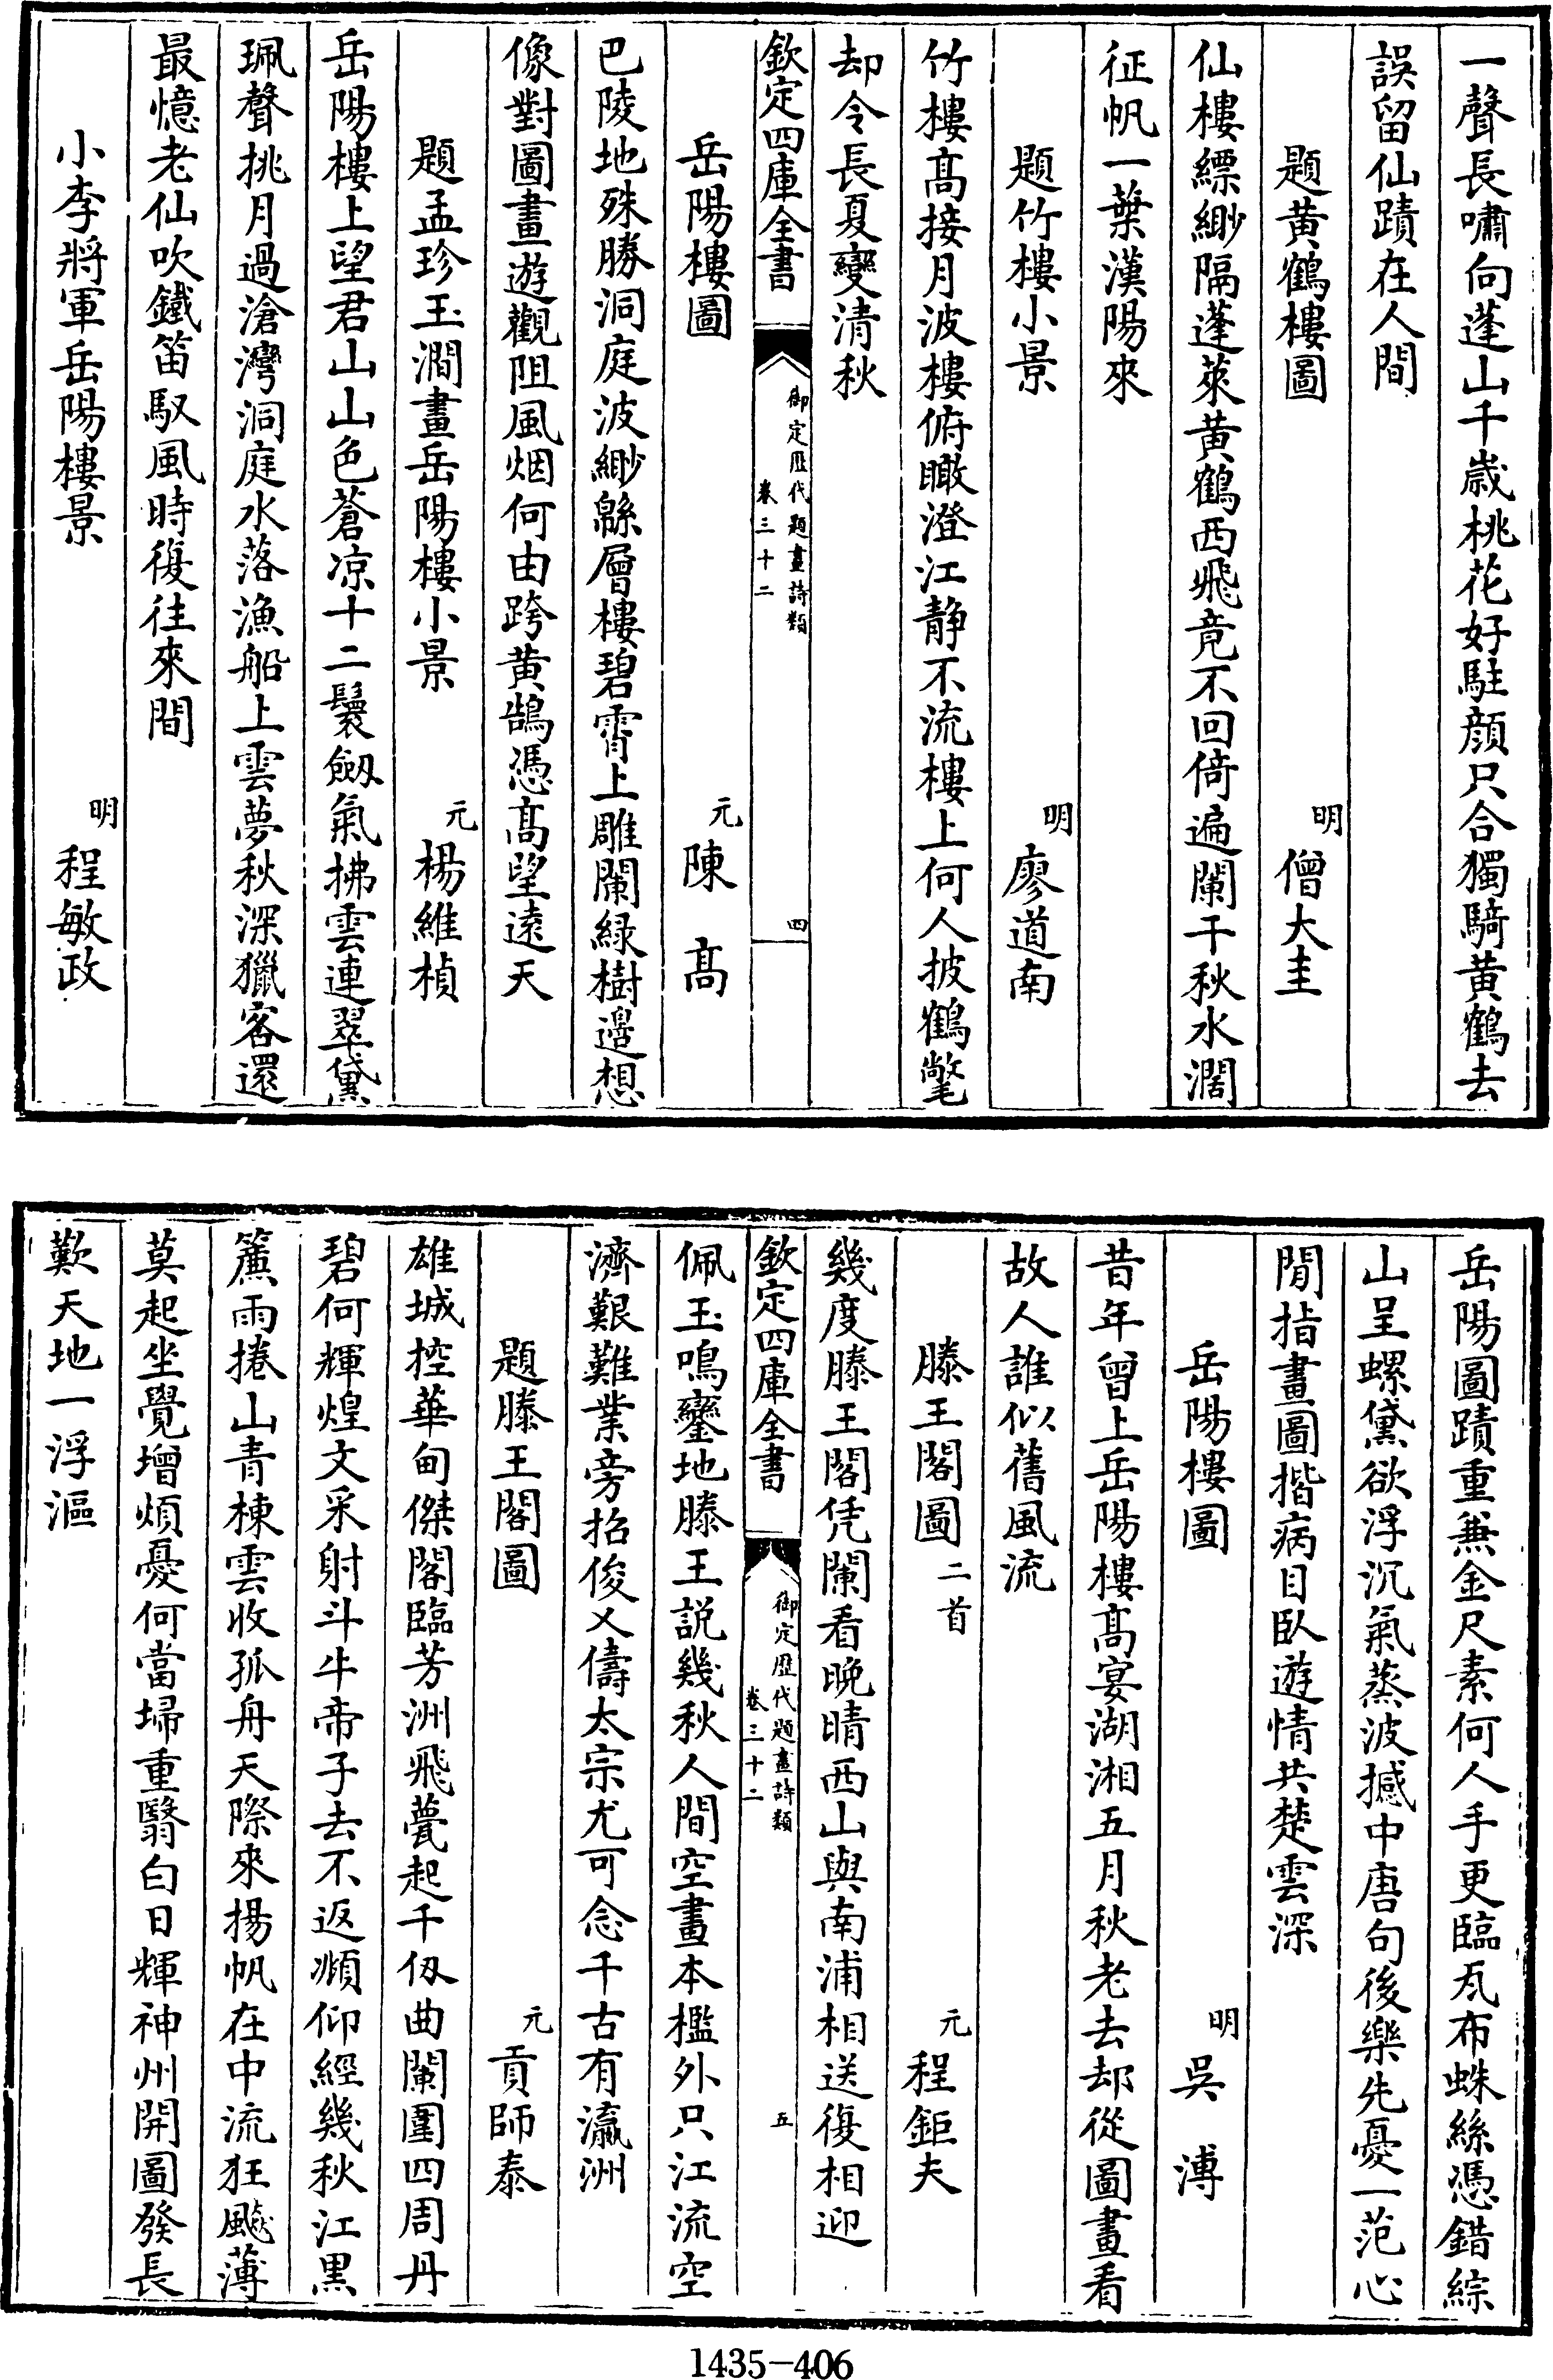 一聲長嘯向蓬山千歲桃花好駐顏只合獨騎黃鶴去
誤留仙蹟在人間
題黃鶴樓圖 明 僧大圭
仙樓縹緲隔蓬萊黃鶴西飛竟不回倚遍闌干秋水濶
征帆一葉漢陽來
題竹樓小景 明 廖道南
竹樓髙接月波樓俯瞰澄江靜不流樓上何人披鶴氅
却令長夏變清秋
欽定四庫全書 御定歷代題畫詩類 卷三十二 四
岳陽樓圖 元 陳髙
巴陵地殊勝洞庭波緲緜層樓碧霄上雕闌緑樹邉想
像對圖畫遊觀阻風烟何由跨黃鵠憑髙望遠天
題孟珍玉澗畫岳陽樓小景 元 楊維楨
岳陽樓上望君山山色蒼凉十二鬟劔氣拂雲連翠黛
珮聲挑月過滄灣洞庭水落漁船上雲夢秋深獵客還
最憶老仙吹鐵笛馭風時復往來間
小李將軍岳陽樓景 明 程敏政
岳陽圖蹟重兼金尺素何人手更臨瓦布蛛絲憑錯綜
山呈螺黛欲浮沉氣蒸波撼中唐句後樂先憂一范心
閒指畫圖揩病目臥遊情共楚雲深
岳陽樓圖 明 吳溥
昔年曾上岳陽樓髙宴湖湘五月秋老去却從圖畫看
故人誰似舊風流
滕王閣圖 二首 元 程鉅夫
幾度滕王閣凭闌看晚晴西山與南浦相送復相迎
欽定四庫全書 御定歷代題畫詩類 卷三十二 五
佩玉鳴鑾地滕王説幾秋人間空畫本檻外只江流空
濟艱難業旁招俊乂儔太宗尤可念千古有瀛洲
題滕王閣圖 元 貢師泰
雄城控華甸傑閣臨芳洲飛甍起千仭曲闌圍四周丹
碧何輝煌文采射斗牛帝子去不返頫仰經幾秋江黒
簾雨捲山青棟雲收孤舟天際來揚帆在中流狂飈薄
莫起坐覺增煩憂何當埽重翳白日輝神州開圖發長
歎天地一浮漚
1435-406